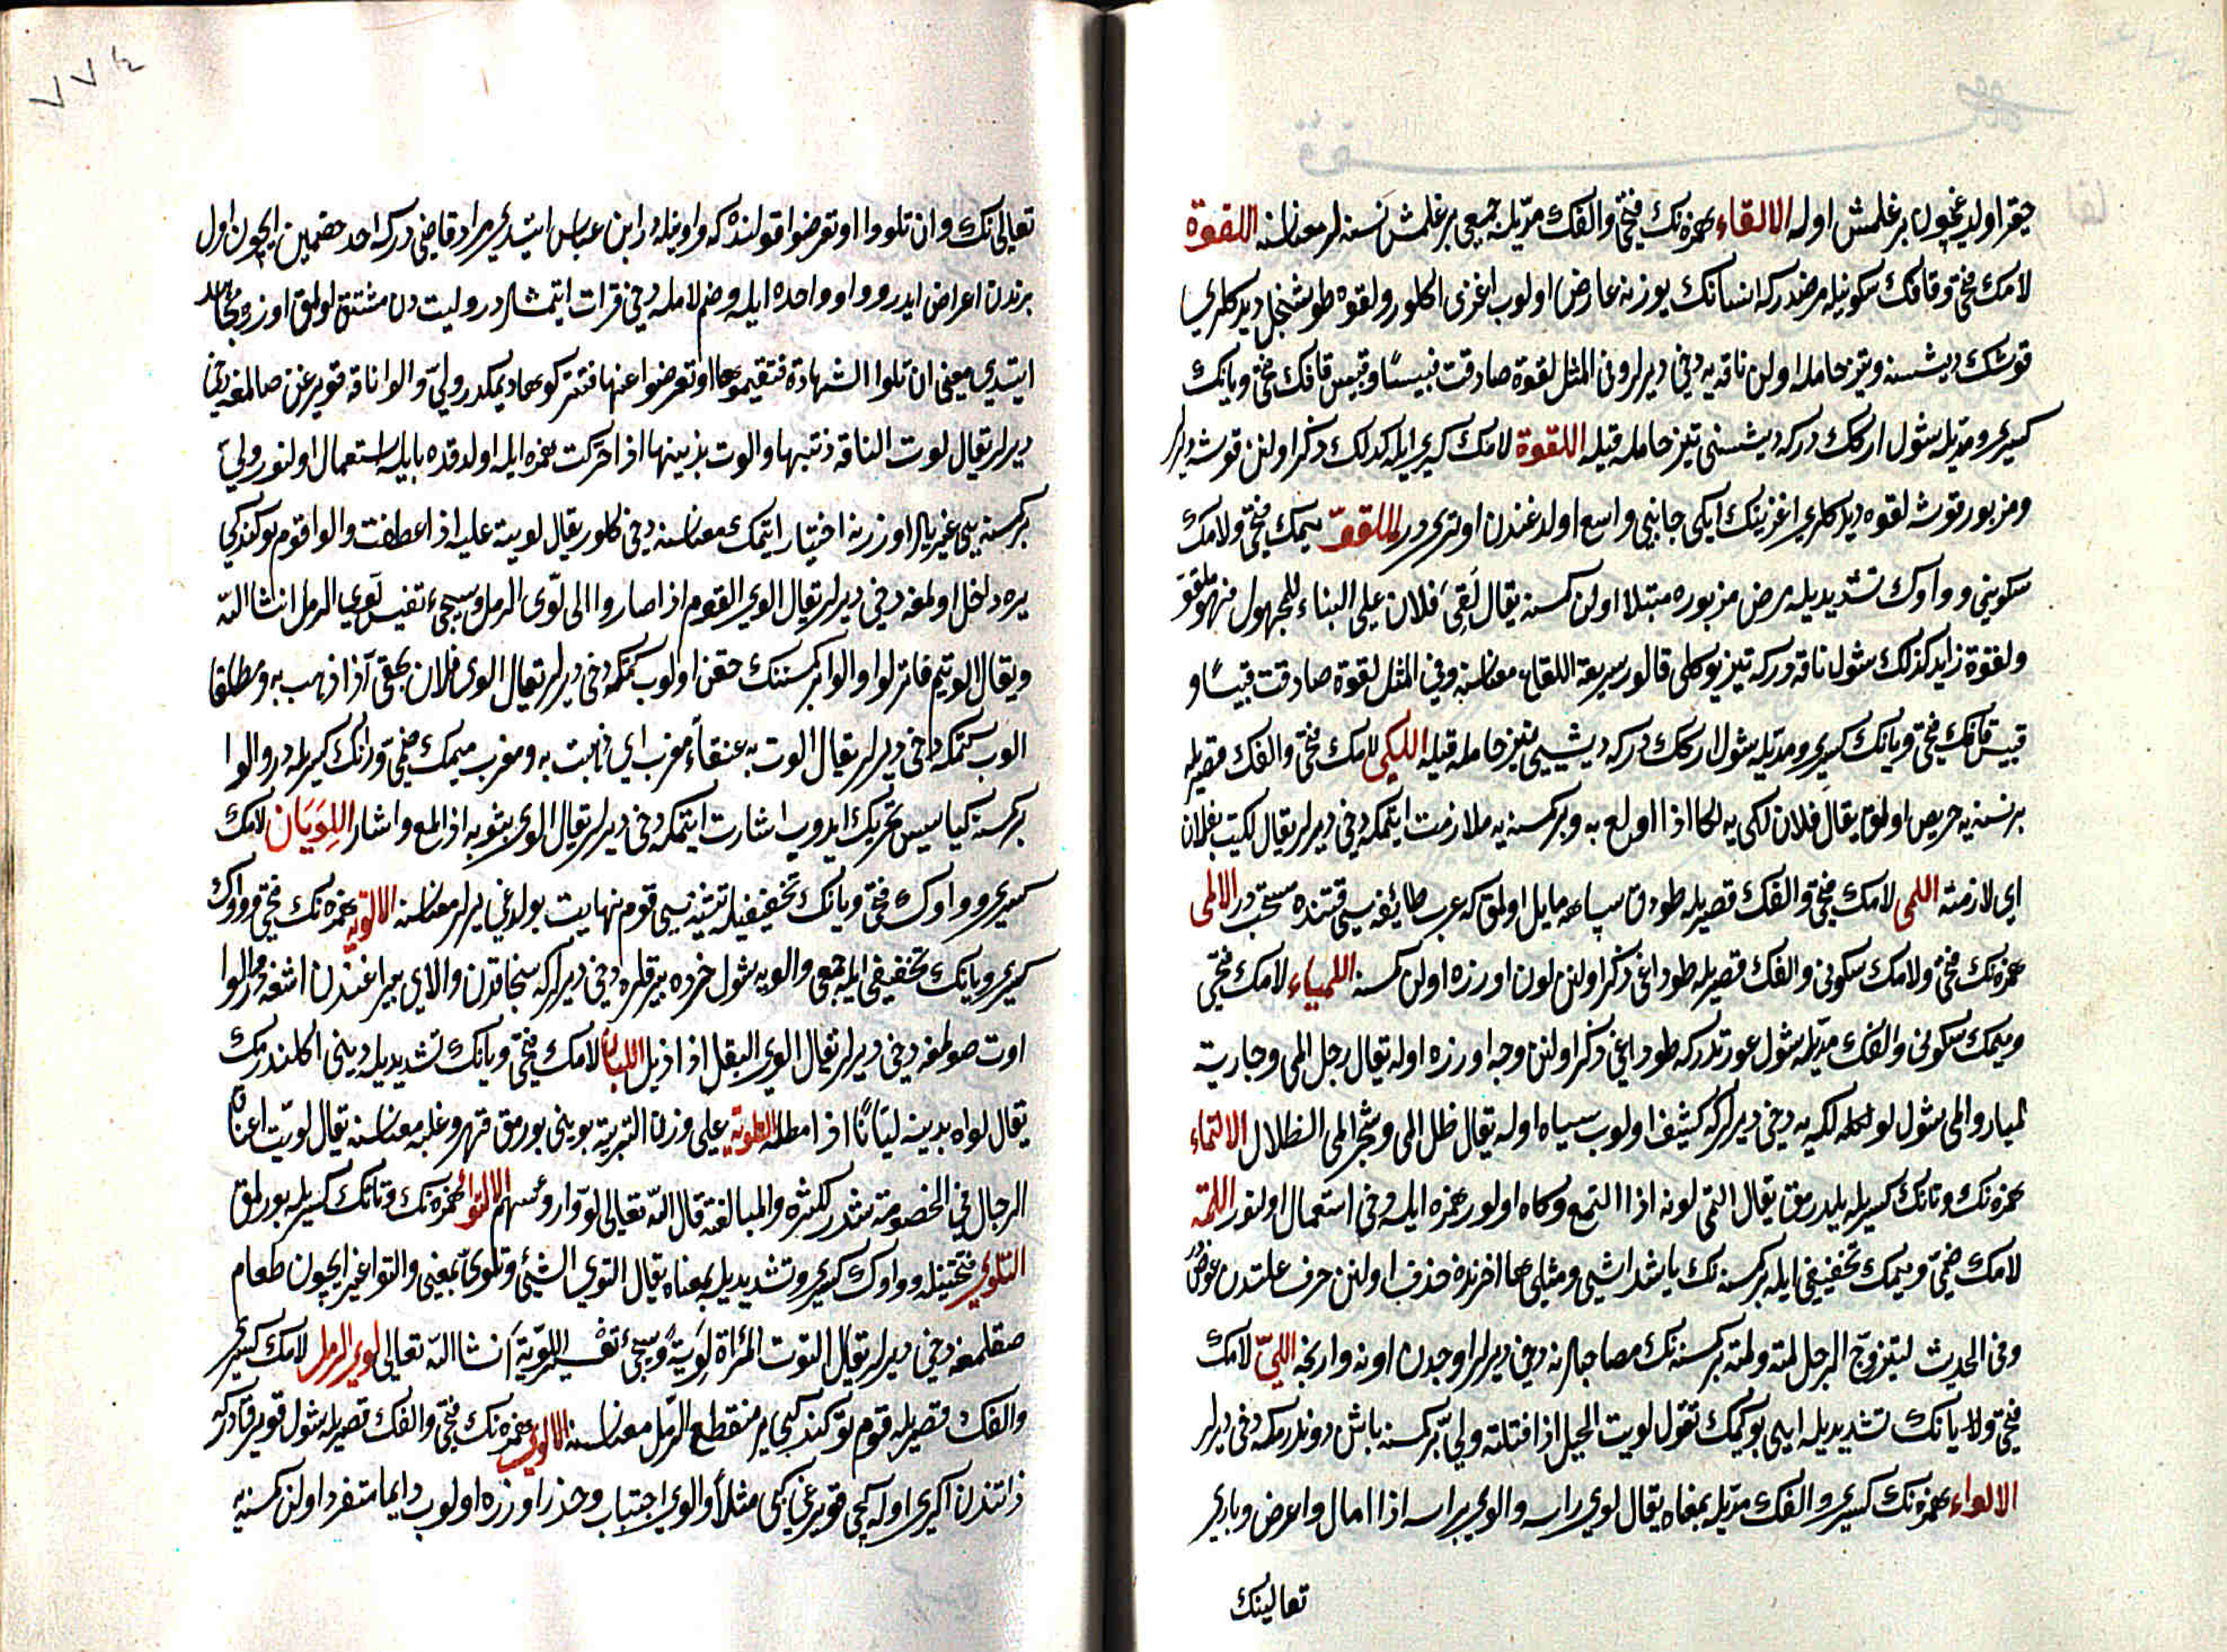 حقر اولديغيچون برغلمش اوله الالقاء همزه نك فتحى والفك مدّيله جمعى برغلمش نسنه لر معناسنه اللقوة
لامك فتحى وقافك سكونيله مرضدر كه انسانك يوزينه عارض اولوب اغزى اكلور ولقوه طوشنجل ديدكلرى
قوشك ديشسنه وتيز حامله اولن ناقه يه دخى ديرلر وفى المثل لقوة صادقت قبيسًا وقبيس قافك فتحى ويانك
كسرى ومدّيله شول اركك دركه ديشسنى تيز حامله قيله اللقوة لامك كسرى ايله كذلك ذكر اولنن قوشه ديرلر
ومزبور قوشه لقوه ديدكلرى اغزينك ايكى جانبى واسع اولدغندن اوتريدر الملقوّ ميمك فتحى ولامك
سكونى وواوك تشديديله مرض مزبوره مبتلا اولن كمسنه يقال لُقِىَ فلان على البناء للمجهول فهو ملقوّ
ولقوة زايد كذلك شول ناقه دركه تيز يوكلى قالور سريعة اللقاح معناسنه وفى المثل لقوة صادقت قبيسًا و
قبيس قافك فتحى ويانك كسرى ومدّيله شول اركك دركه ديشيى تيز حامله قيله اللكى لامك فتحى والفك قصريله
برنسنه يه حريص اولمق يقال فلان لكى به لكا اذا اولع به وبر كمسنه يه ملازمت ايتمكه دخى ديرلر يقال لكيت بفلان
اى لازمته اللمى لامك فتحى والفك قصريله طودق سياهه مايل اولمق كه عرب طائفه سى قتنده مستحبدر الالمى
همزه نك فتحى ولامك سكونى والفك قصريله طوداغى ذكر اولنن لون اوزره اولن كمسنه اللمياء لامك فتحى
وميمك سكونى والفك مدّيله شول عورتدركه طوداغى ذكر اولنن وجه اوزره اوله يقال رجل المى وجارية
لمياء والمى شول كولكه يه دخى ديرلر كه كثيف اولوب سياه اوله يقال ظل المى وشجر المى الظلال الالتماء
همزه نك وتانك كسريله بلدرمق يقال التمى لونه اذا التمع وكاه اولور همزه ايله دخى استعمال اولنور اللمة
لامك ضمى وميمك تخفيفى ايله بر كمسنه نك ياشداشى ومثلى ها اخرنده حذف اولنن حرف علتدن عوضدر
وفى الحديث ليتزوّج الرجل لمته ولمة بر كمسنه نك مصاحبلرينه دخى ديرلر اوچدن اونه وارنجه اللىّ لامك
فتحى ولا يانك تشديديله ايپى بوكمك تقول لويت الحبل اذا فتلته ولىّ بر كمسنه باش دوندرمكه دخى ديرلر
الالواء همزه نك كسرى والفك مدّيله بمعناه يقال لوى راسه والوى براسه اذا امال واعرض وبارى
تعالينك
تعالى نك وان تلووا او تعرضوا قولنده كه واويله در ابن عباس ايتدى مراد قاضى دركه احد خصمين ايچون اول
بردن اعراض ايدر وواو واحده ايله وضم لامله دخى قرات ايتمشلردر وليت دن مشتق اولمق اوزره مجاهد
ايتدى معنى ان تلوا الشهادة فتقيموها او تعرضوا عنها فتتركوها ديمكدر ولىّ والوا ناقه قويرغن صالمغه دخى
ديرلر يقال لوت الناقة ذنبها والوت بذنبها اذا حركت همزه ايله اولدقده با ايله استعمال اولنور ولىّ
بر كمسنه يى غيريلر اوزرينه اختيار ايتمك معناسنه دخى كلور يقال لويت عليه اذا عطفت والوا قوم بوكندكى
يره داخل اولمغه دخى ديرلر يقال الوى القوم اذا صاروا الى لوى الرمل وسيجئ تفسير لوى الرمل انشا الله
ويقال الويتم فانزلوا والوا بر كمسنه نك حقن اولوب كتمكه دخى ديرلر يقال الوى فلان بحقى اذا ذهب به ومطلقا
الوب كتمكه دخى ديرلر يقال الوت به عنقاء مغرب اى ذهبت به ومغرب ميمك ضمى ورانك كسريله در والوا
بر كمسنه كياسيى تحريك ايدوب اشارت ايتمكه دخى ديرلر يقال الوى بثوبه اذا لمع واشار اللِّوَيَان لامك
كسرى وواوك فتحى ويانك تخفيفيله تثنيه سى قوم نهايت بولدغى يرلر معناسنه الالوية همزه نك فتحى وواوك
كسرى ويانك تخفيفى ايله جمعى والويه شول خرده بيرقلره دخى ديرلر كه سنجاقدن والاى بيراغندن اشغه در الوا
اوت صولمغه دخى ديرلر يقال الوى البقل اذا ذبل الليان لامك فتحى ويانك تشديديله دينى اكلندرمك
يقال لواه بدينه ليّانًا اذا مطله التلوية على وزن التربية بوينى بورمق قهر وغلبه معناسنه يقال لويت اعناق
الرجال فى الخصومة شدد للكثرة والمبالغة قال الله تعالى لوّوا رؤسهم الالتوا همزه نك وتانك كسريله بورلمق
التلوّى فتحتيله وواوك كسرى وتشديديله بمعناه يقال التوى الشئ وتلوى بمعنى والتوا غير ايچون طعام
صقلمغه دخى ديرلر يقال التوت المرأة لويّة وسيجئ تفسير اللويّة انشا الله تعالى لوى الرمل لامك كسرى
والفك قصريله قوم توكندكى ير منقطع الرمل معناسنه الالوى همزه نك فتحى والفك قصريله شول قويرقدركه
ذاتندن اكرى اوله كچى قويرغى كبى مثلا والوى اجتناب وحذر اوزره اولوب دايما متفرد اولن كمسنه يه
٧٧٤